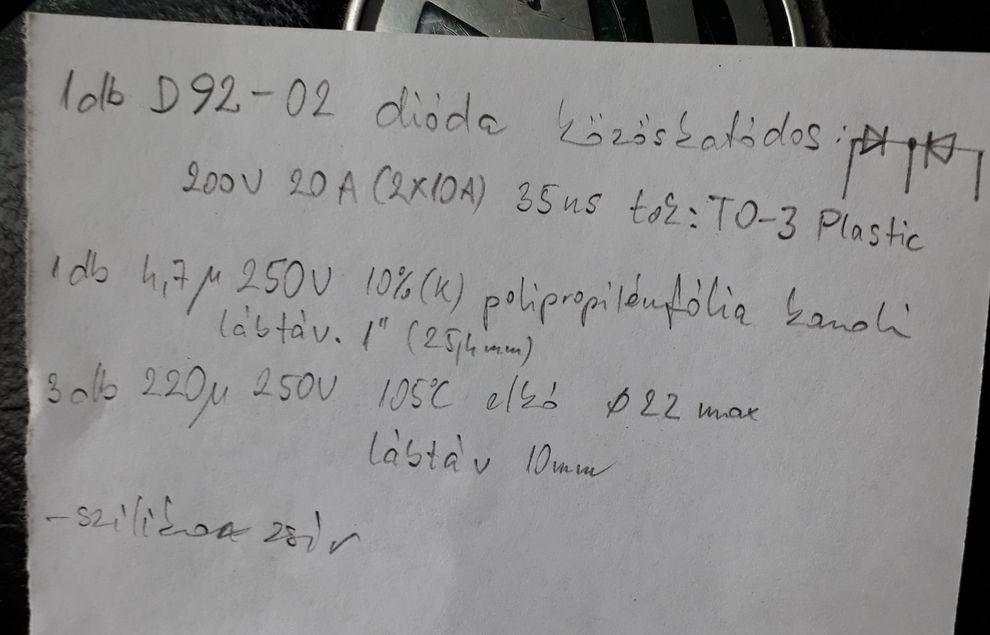 1 db D92-02 dióda közöskatódos:
200V 20A (2x10A) 35ns tok: TO-3 Plastic
1 db 4,7µ 250V 10%(K) polipropilénfólia kondi
lábtáv. 1" (25,4mm)
3 db 220µ 250V 105°C elkó ø22 max
lábtáv 10mm
- szilikon zsír